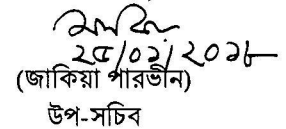 ২৫/০১/২০১৮
(জাকিয়া পারভীন)
উপ-সচিব